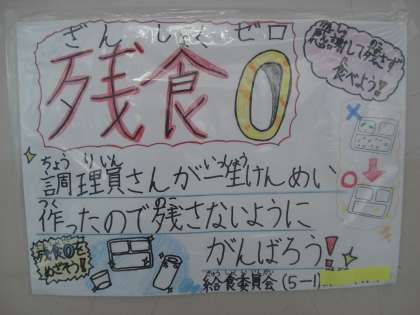 ざん しょく ゼロ
残食0
感謝して残さず
食べよう!
ちょうりいん いっしょう
調理員さんが一生けんめい
つく のこ
作ったので残さないように
がんばろう!
残食0を
めざそう!!
きゅうしょくいいんかい
給食委員会(5-1)